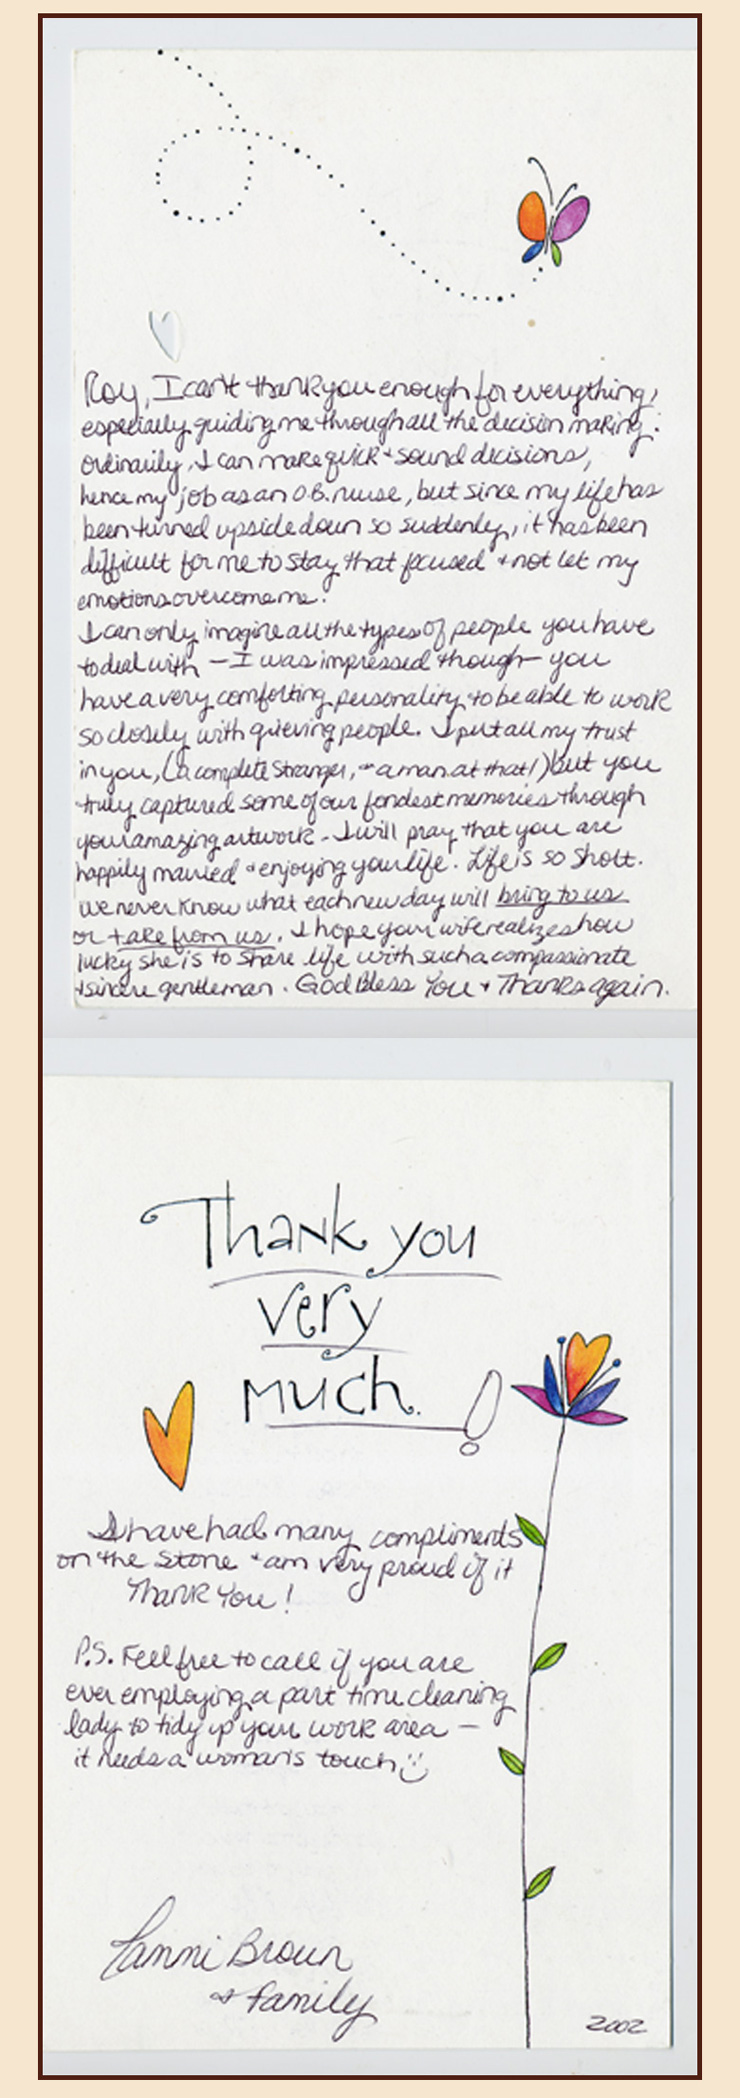 Roy, I can't thank you enough for everything,
especially guiding me through all the decision making.
Ordinarily, I can make quick + sound decisions,
hence my job as an O.B. nurse, but since my life has
been turned upside down so suddenly, it has been
difficult for me to stay that focused + not let my
emotions overcome me.
I can only imagine all the types of people you have
to deal with – I was impressed though – you
have a very comforting personality, to be able to work
so closely with grieving people. I put all my trust
in you, (a complete stranger, – a man at that!) but you
truly captured some of our fondest memories through
your amazing artwork – I will pray that you are
happily married + enjoying your life. Life is so short.
We never know what each new day will bring to us
or take from us. I hope your wife realizes how
lucky she is to share life with such a compassionate
+ sincere gentleman. God Bless You + Thanks again.
Thank you
very
much.!
I have had many compliments
on the stone + am very proud if it
Thank You!
P.S. Feel free to call if you are
ever employing a part time cleaning
lady to tidy up your work area –
it needs a woman's touch :)
Brown
+ family
2002